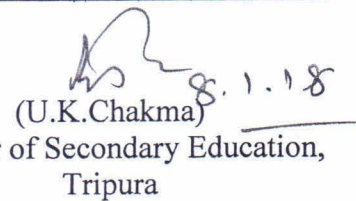 8.1.18
(U.K.Chakma)
of Secondary Education,
Tripura